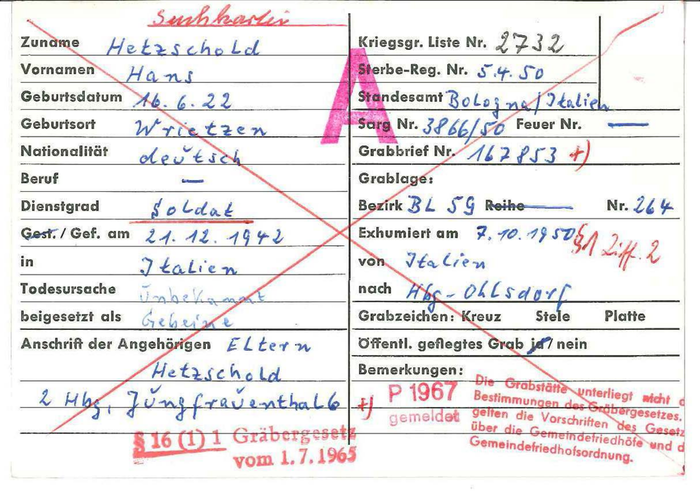 Suchkartei
Zuname Hetzschold
Vornamen Hans
Geburtsdatum 16.6.22
Geburtsort Wrietzen
Nationalität deutsch
Beruf —
Dienstgrad Soldat
Gest./Gef. am 21.12.1942
in Italien
Todesursache Unbekannt
beigesetzt als Gebeine
Anschrift der Angehörigen Eltern
Hetzschold
2 Hbg, Jungfrauenthal 6
§ 16 (1) 1 Gräbergesetz
vom 1.7.1965
A
Kriegsgr. Liste Nr. 2732
Sterbe-Reg. Nr. 5.4.50
Standesamt Bologna/Italien
Sarg Nr. 3866/50 Feuer Nr. —
Grabbrief Nr. 167853 +)
Grablage:
Bezirk BL 59 Reihe Nr. 264
Exhumiert am 7.10.1950 § 1 Ziff. 2
von Italien
nach Hbg-Ohlsdorf
Grabzeichen: Kreuz Stele Platte
Öffentl. gepflegtes Grab ja/nein
Bemerkungen:
+) P 1967
gemeldet
Die Grabstätte unterliegt nicht d
Bestimmungen des Gräbergesetzes.
gelten die Vorschriften des Gesetz
über die Gemeindefriedhöfe und d
Gemeindefriedhofsordnung.